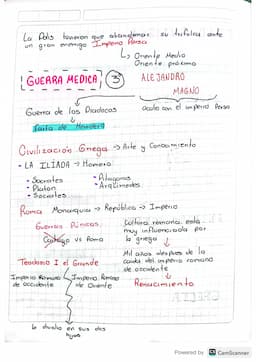 La Polis tuvieron que abandonar su ante
un gran enemigo Imperio Persa
↳ Oriente Medio
Oriente próximo
GUERRA MEDICA 3º
ALEJANDRO
MAGNO
Guerra de los Diadocos
acabo con el imperio Persa
Civilización Griega → Arte y Conocimiento
- LA ILÍADA → Homero
• Socrates
• Platon
• Socrates
• Pitagoras
• Arquimedes
Roma Monarquia → República → Imperio
Guerras Púnicas
Cartago vs Roma
Cultura romana esta
muy influenciada por
la griega
Teodosio I el Grande
Imperio Romano
de occidente
Imperio Romano
de Oriente
Mil años despues de la
caida del imperio romano
de occidente
Renacimiento
lo dividio en sus dos
hijos
Powered by CS CamScanner